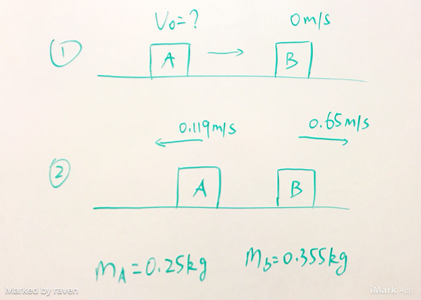 ① V₀=? 0m/s
A B
0.119m/s 0.65m/s
②
A B
mA=0.25kg Mb=0.355kg
Marked by raven